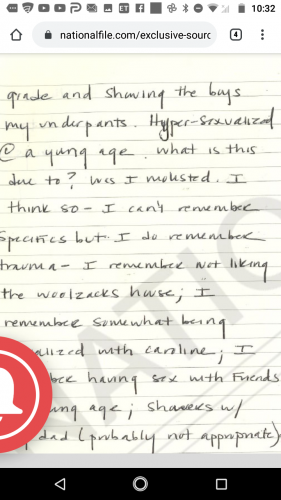 10:32
nationalfile.com/exclusive-sourc
4
grade and showing the boys
my underpants. Hyper-sexualized
@ a yung age. what is this
due to? Was I molested. I
think so - I can't remember
specifics but I do remember
trauma - I remember not liking
the woolzacks house; I
remember somewhat being
ualized with caroline; I
having sex with friends
ung age; showers w/
dad (probably not appropriate)